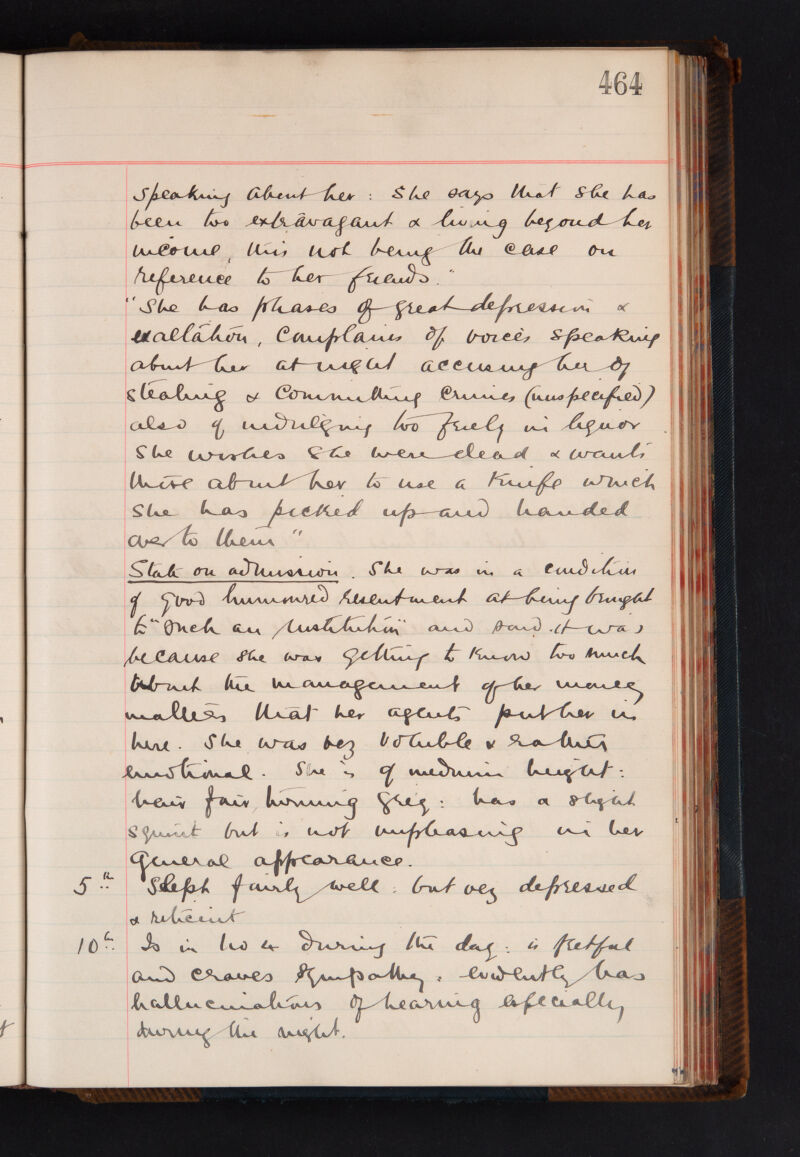 464
speaking about her : She says that she has
been too extravagant & living beyond her
income, this not being the case on
reference to her friends."
"She has phases of great depression &
exaltation, complains of voices speaking
about her at night accusing her of
stealing & committing crimes (unspecified)
also of indulging too freely in liquor
She wishes she were dead & wants
those about her to use a knife which
she has picked up and handed
over to them"
State on admission. She was in a condition
of good humoured resentment at being brought
to "such an institution" and said it was
because she was getting to know too much
about the management of her money
matters that her agents put her in
here. She was very voluble & rather
emotional. She is of medium height :
hair fair, turning grey : has a slight
squint but is not unpleasing in her
general appearance.
5th Slept fairly well : but very depressed
& reticent
10th Is in No 4 during the day : is fretful
and craves sympathy : evidently has
hallucinations of hearing especially
during the night.